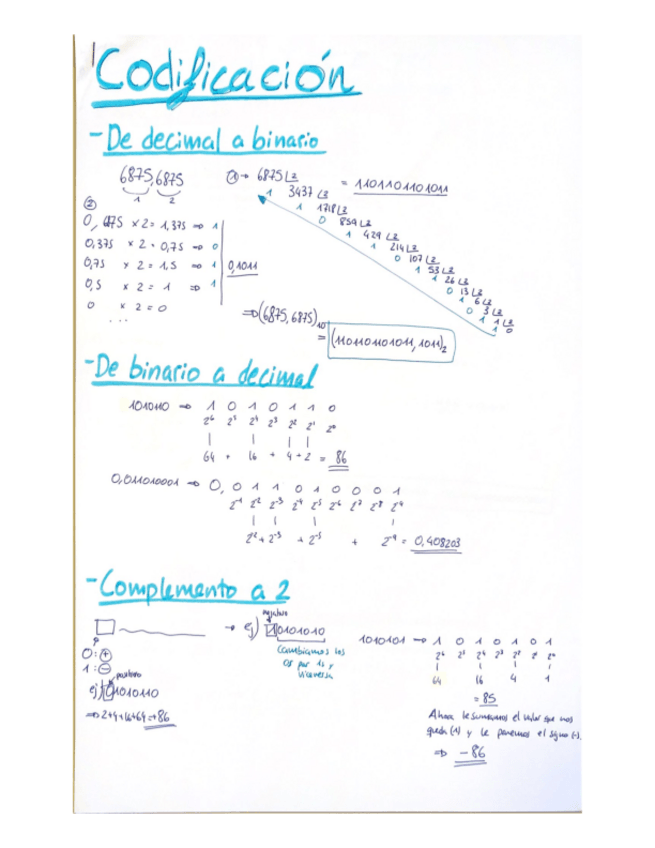 Codificación
- De decimal a binario
6875,6875
1 2
① → 6875 ⌊2 = 1101101101011
1 3437 ⌊2
1 1718 ⌊2
0 859 ⌊2
1 429 ⌊2
1 214 ⌊2
0 107 ⌊2
1 53 ⌊2
1 26 ⌊2
0 13 ⌊2
1 6 ⌊2
0 3 ⌊2
1 1 ⌊2
1 0
②
0,6875 × 2 = 1,375 ⇒ 1
0,375 × 2 = 0,75 ⇒ 0
0,75 × 2 = 1,5 ⇒ 1
0,5 × 2 = 1 ⇒ 1
0 × 2 = 0
...
0,1011
⇒ (6875,6875)₁₀
= (1101101101011,1011)₂
- De binario a decimal
1010110 → 1 0 1 0 1 1 0
2⁶ 2⁵ 2⁴ 2³ 2² 2¹ 2⁰
64 + 16 + 4 + 2 = 86
0,011010001 → 0, 0 1 1 0 1 0 0 0 1
2⁻¹ 2⁻² 2⁻³ 2⁻⁴ 2⁻⁵ 2⁻⁶ 2⁻⁷ 2⁻⁸ 2⁻⁹
2⁻² + 2⁻³ + 2⁻⁵ + 2⁻⁹ = 0,408203
- Complemento a 2
0: ⊕
1: ⊖
positivo
ej) 01010110
⇒ 2+4+16+64 = +86
negativo
→ ej) 10101010
Cambiamos los
0s por 1s y
viceversa
1010101 → 1 0 1 0 1 0 1
2⁶ 2⁵ 2⁴ 2³ 2² 2¹ 2⁰
64 16 4 1
= 85
Ahora le sumamos el valor que nos
queda (1) y le ponemos el signo (-).
⇒ -86